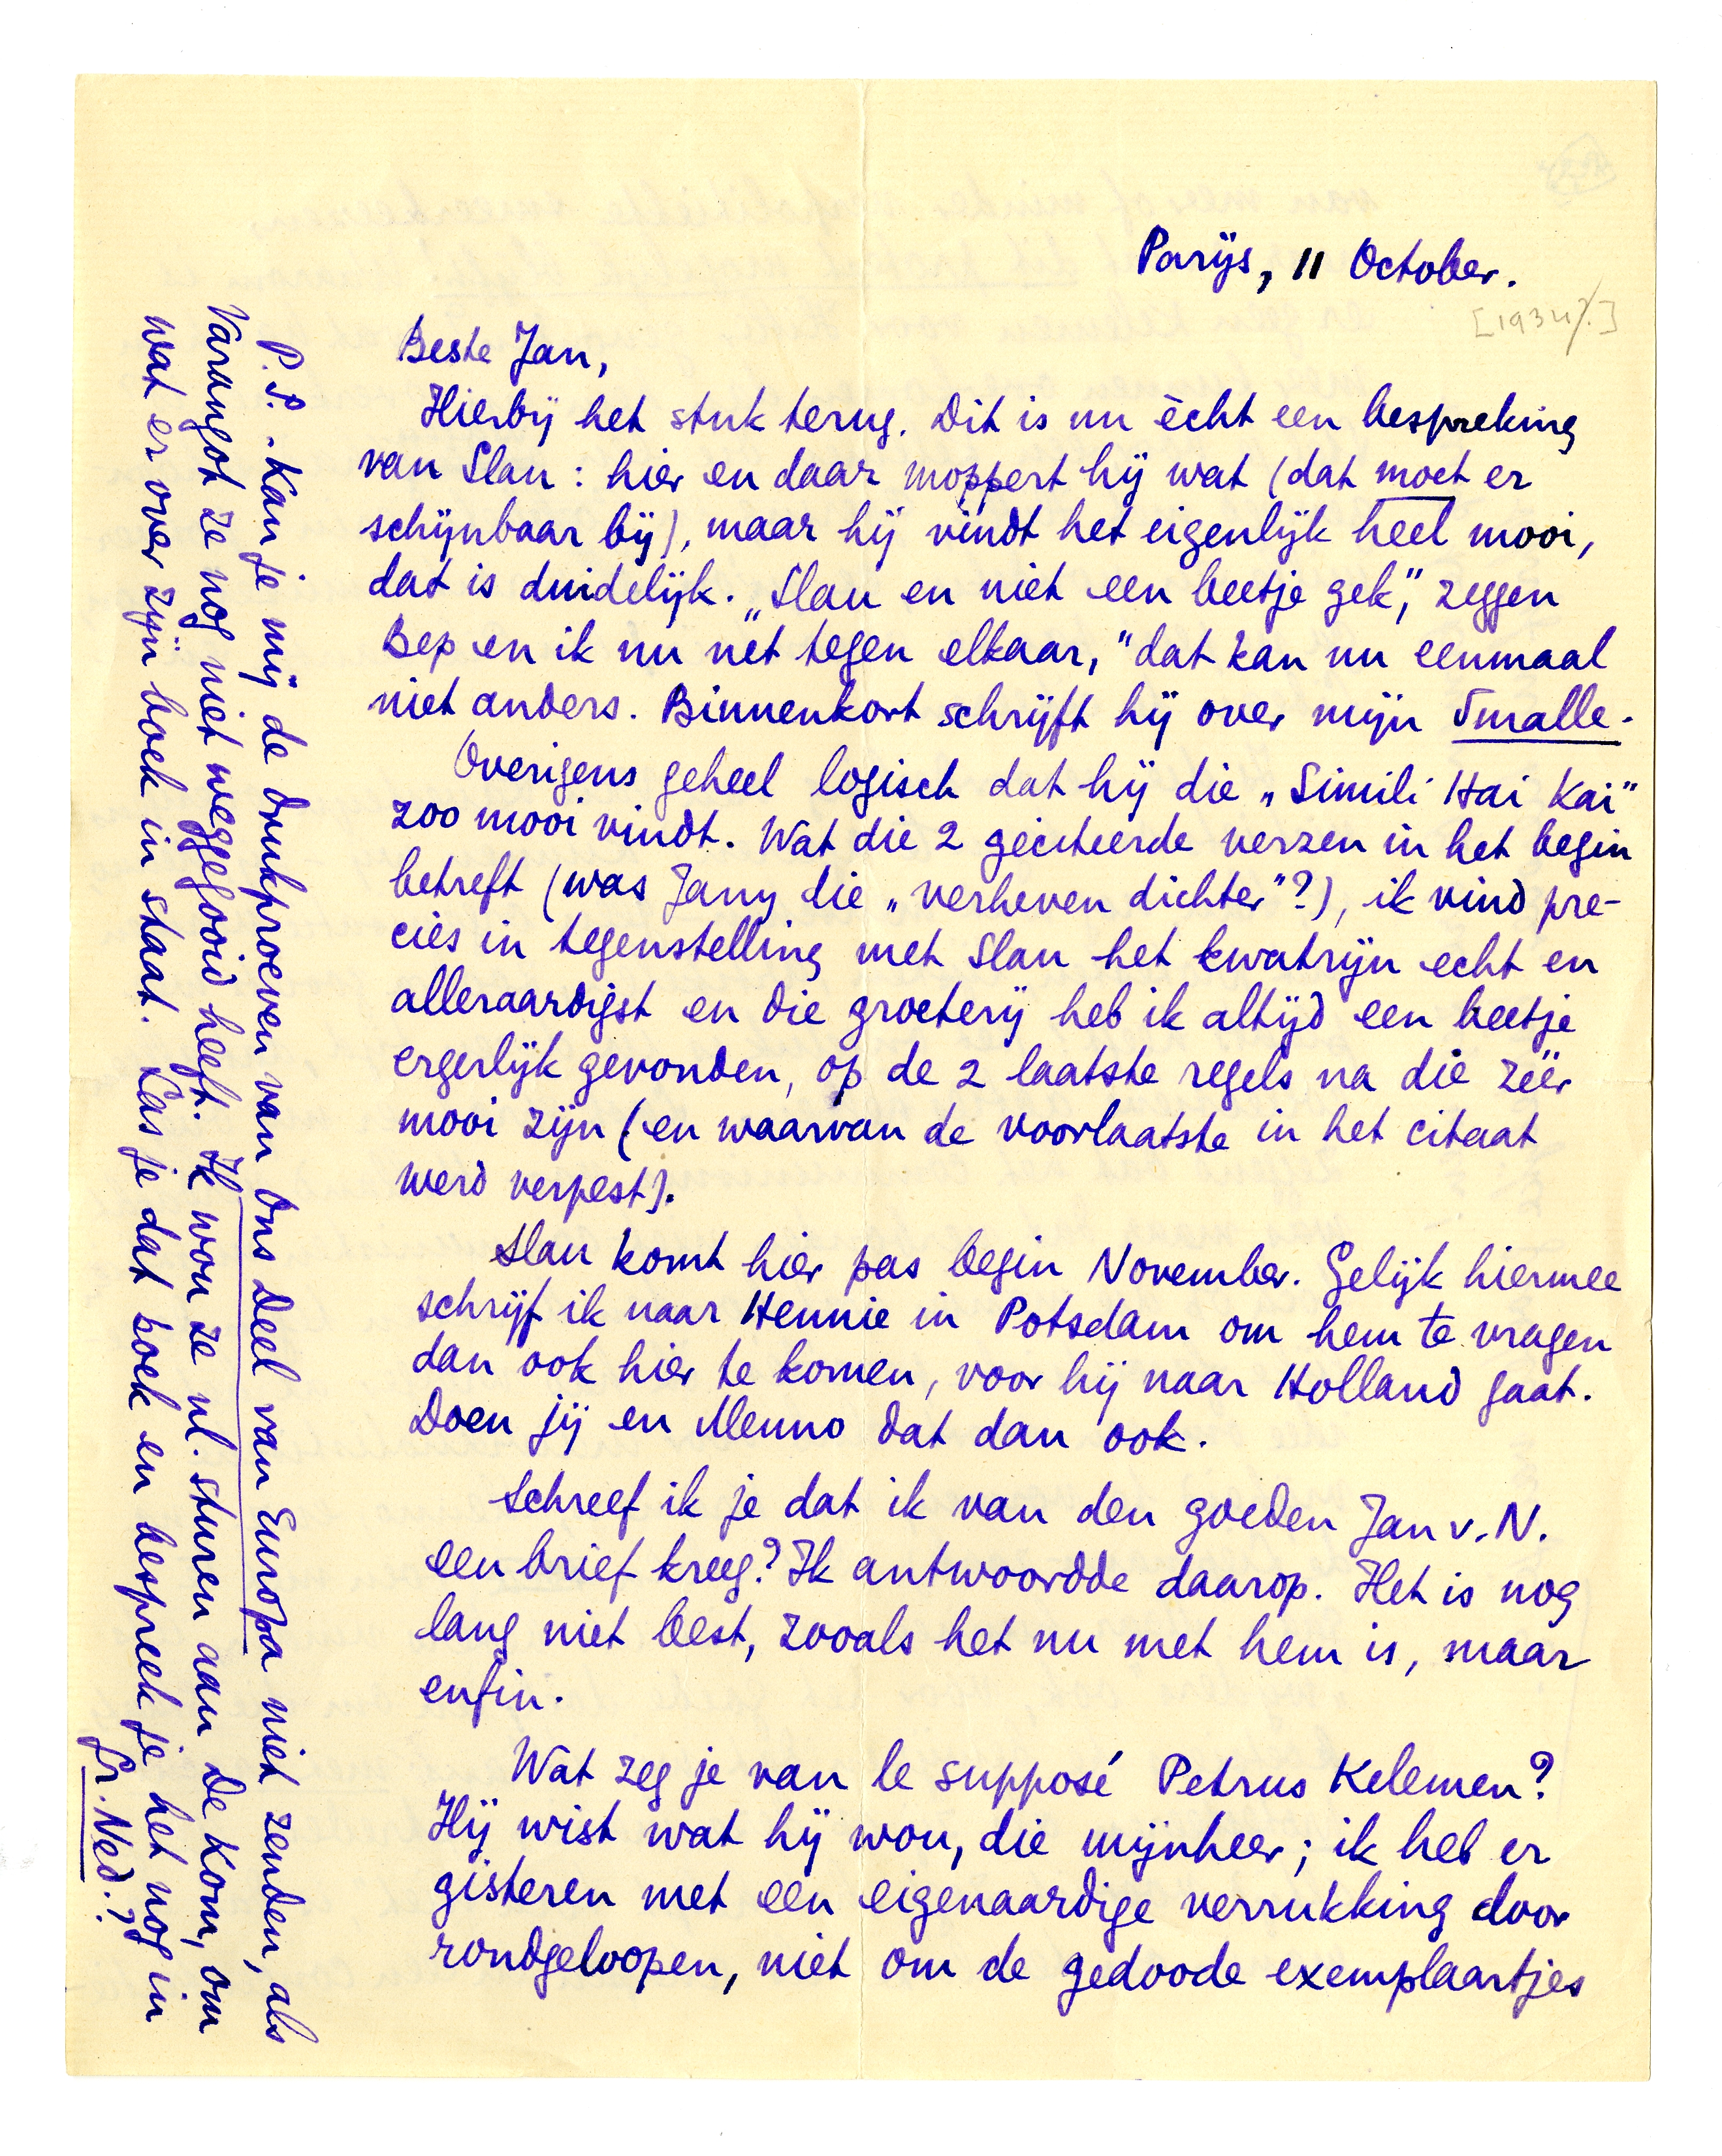 Parijs, 11 October.
[1934?]
Beste Jan,
Hierbij het stuk terug. Dit is nu ècht een bespreking
van Slau: hier en daar moppert hij wat (dat moet er
schijnbaar bij), maar hij vindt het eigenlijk heel mooi,
dat is duidelijk. „Slau en niet een beetje gek”, zeggen
Bep en ik nu net tegen elkaar, "dat kan nu eenmaal
niet anders. Binnenkort schrijft hij over mijn Smalle.
Overigens geheel logisch dat hij die „Simili Hai Kai”
zoo mooi vindt. Wat die 2 geciteerde verzen in het begin
betreft (was Jany die „verheven dichter”?), ik vind pre-
cies in tegenstelling met Slau het kwatrijn echt en
alleraardigst en die groeterij heb ik altijd een beetje
ergerlijk gevonden, op de 2 laatste regels na die zéér
mooi zijn (en waarvan de voorlaatste in het citaat
werd verpest).
Slau komt hier pas begin November. Gelijk hiermee
schrijf ik naar Hennie in Potsdam om hem te vragen
dan ook hier te komen, voor hij naar Holland gaat.
Doen jij en Menno dat dan ook.
Schreef ik je dat ik van den goeden Jan v. N.
een brief kreeg? Ik antwoordde daarop. Het is nog
lang niet best, zooals het nu met hem is, maar
enfin.
Wat zeg je van le supposé Petrus Kelemen?
Hij wist wat hij wou, die mijnheer; ik heb er
gisteren met een eigenaardige verrukking door
rondgeloopen, niet om de gedoode exemplaartjes
P.S. Kan je mij de drukproeven van Ons Deel van Europa niet zenden, als
Varangot ze nog niet weggegooid heeft. Ik wou ze nl. sturen aan De Kom, om
wat er over zijn boek in staat. Las je dat boek en bespreek je het nog in
Gr. Ned.?